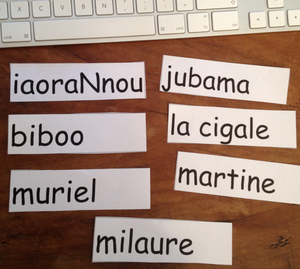 iaoraNnou
jubama
biboo
la cigale
muriel
martine
milaure